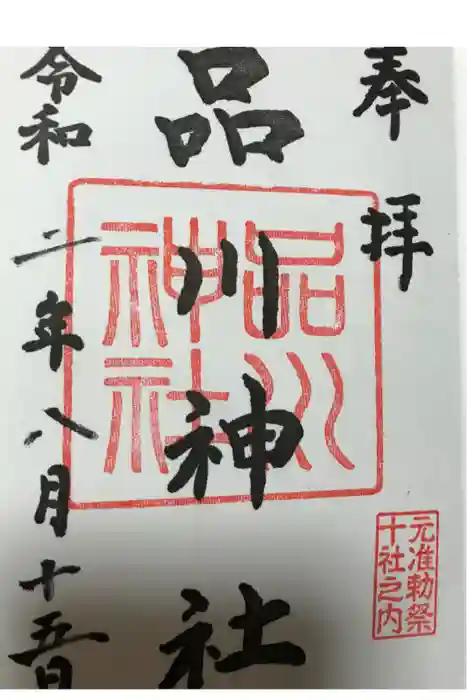 奉拝
品川神社
品川
神社
元准勅祭
十社之内
令和二年八月十五日